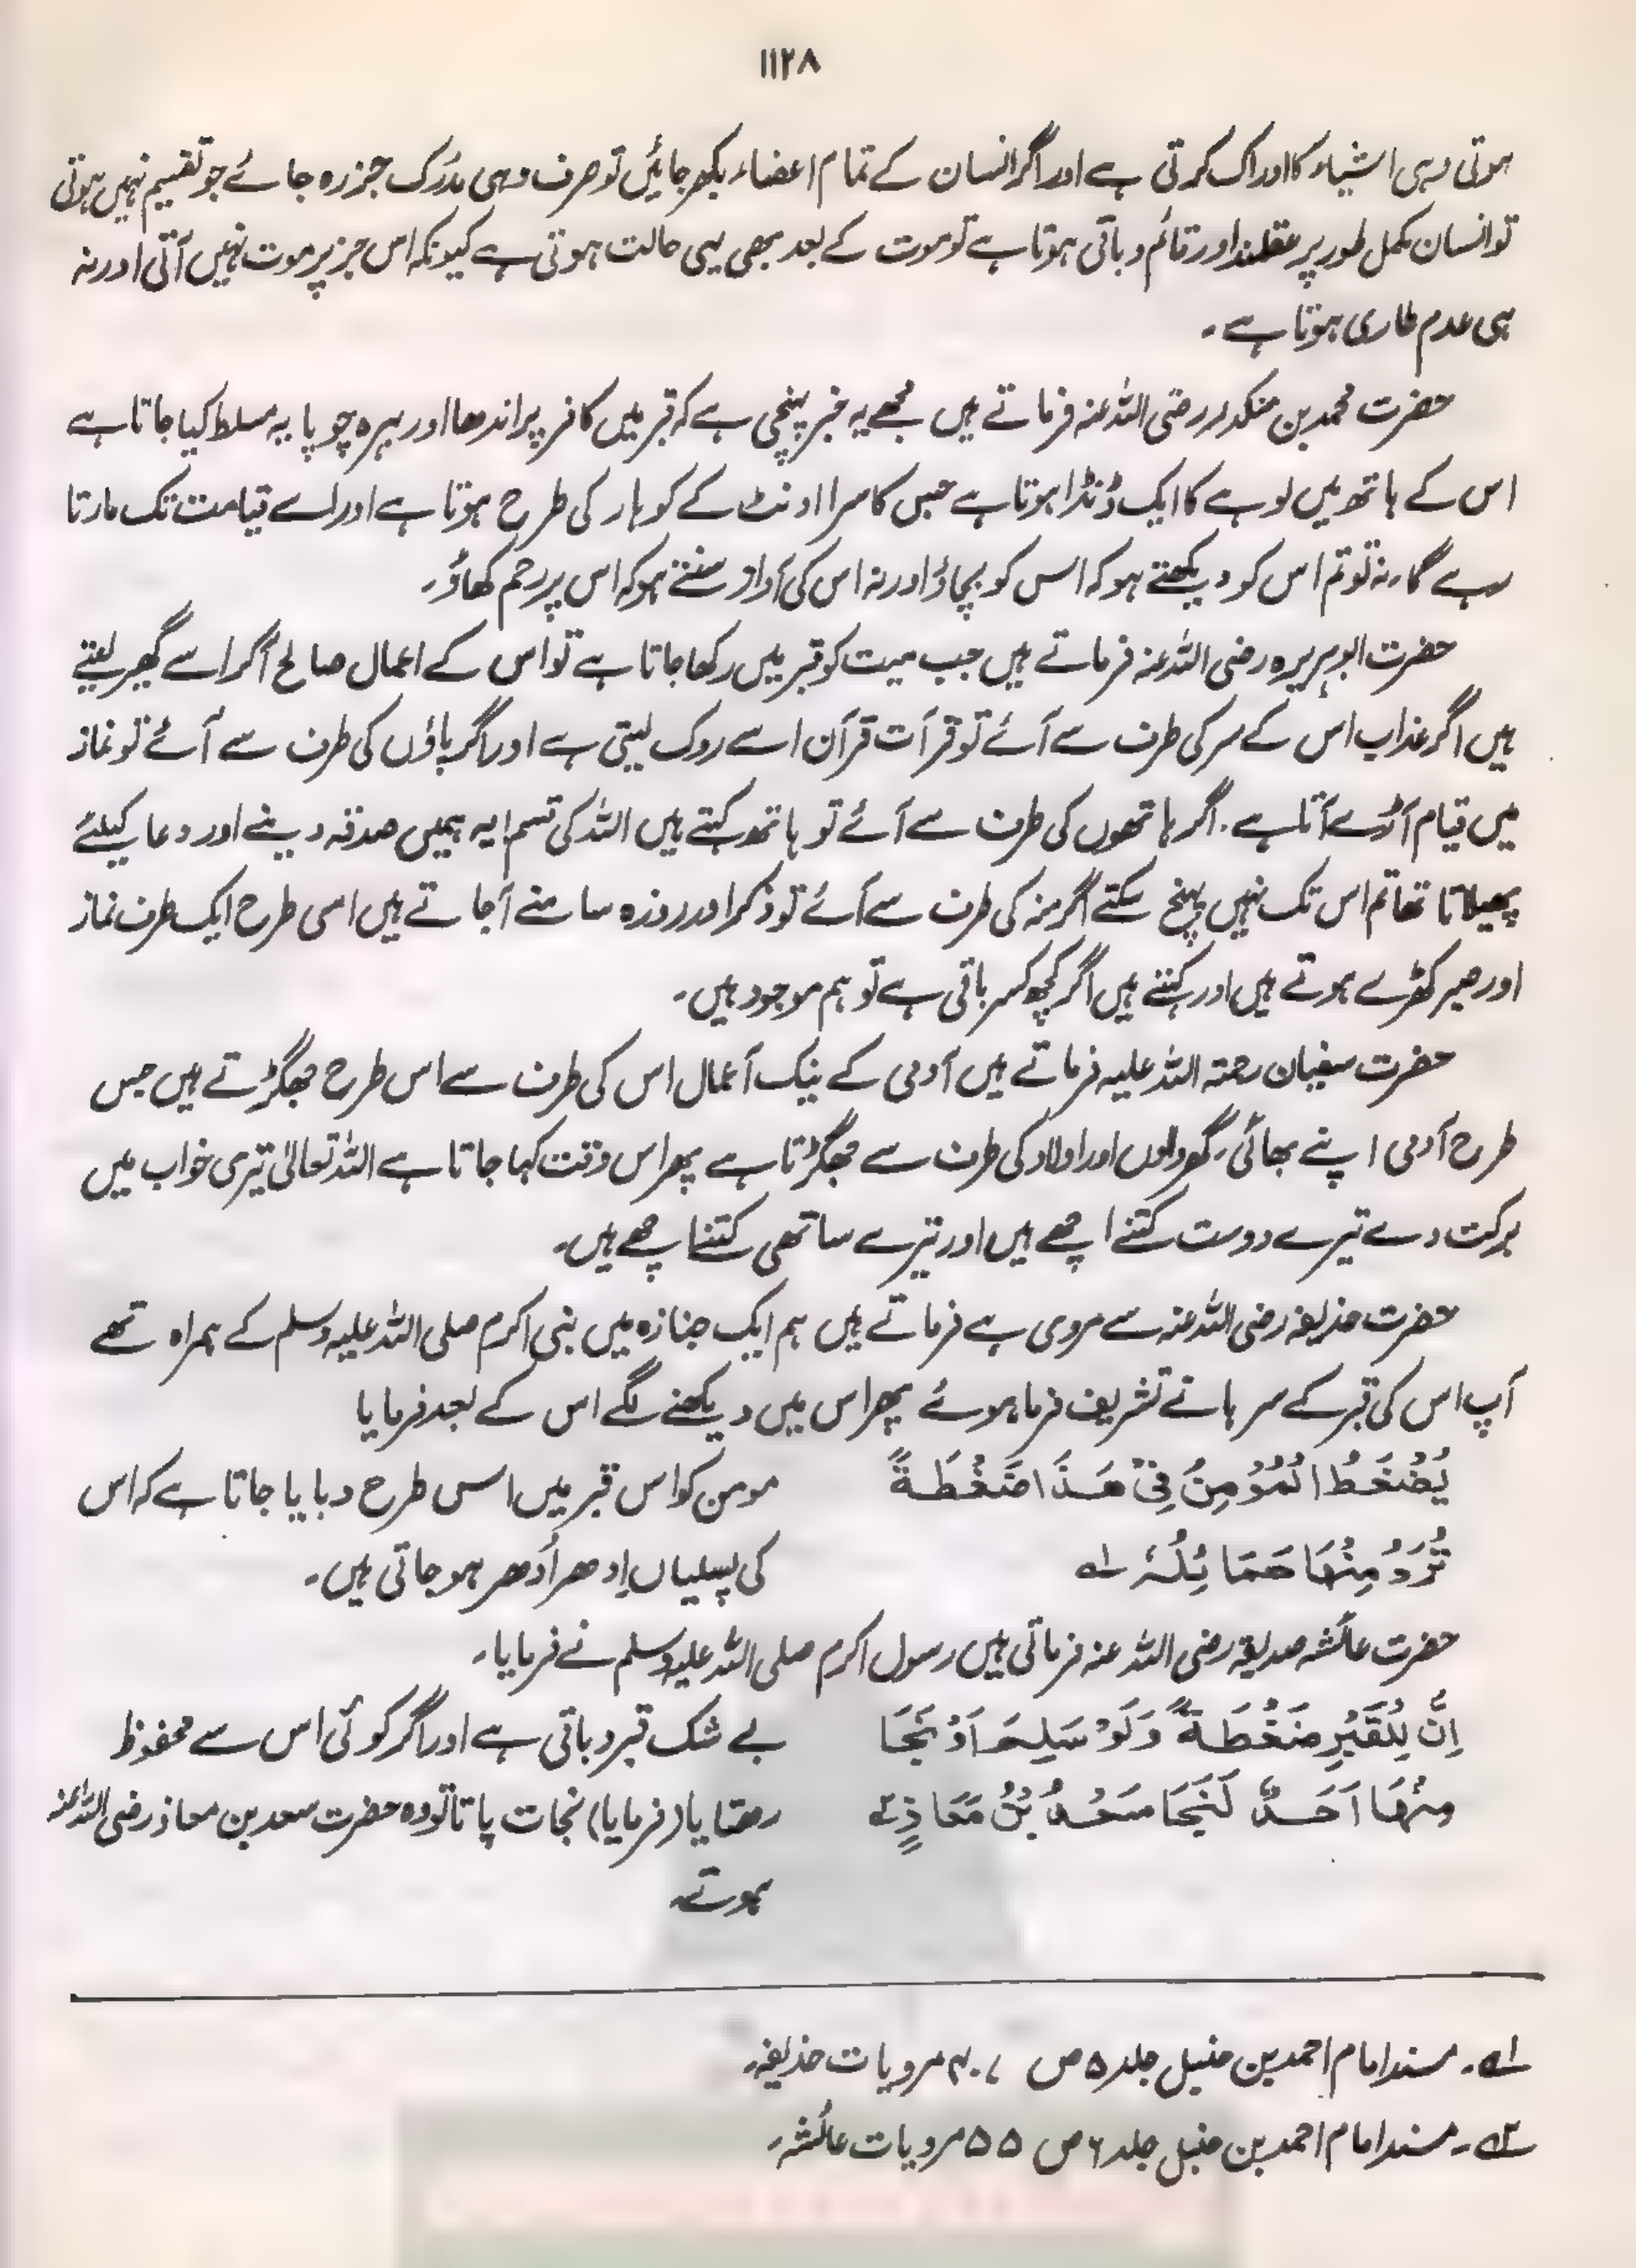 ۱۱۲۸
ہوتی وہی اشیاء کا ادراک کرتی ہے اور اگر انسان کے تمام اعضاء بکھر جائیں تو صرف وہی مدرک جزرہ جائے جو تقسیم نہیں ہوتی
تو انسان مکمل طور پر عقلمند اور قائم و باقی ہوتا ہے تو موت کے بعد بھی یہی حالت ہوتی ہے کیونکہ اس جز پر موت نہیں آتی اور نہ
ہی عدم طاری ہوتا ہے۔
حضرت محمد بن منکدر رضی اللہ عنہ فرماتے ہیں مجھے یہ خبر پہنچی ہے کہ قبر میں کافر پر اندھا اور بہرہ چوپایہ مسلط کیا جاتا ہے
اس کے ہاتھ میں لوہے کا ایک ڈنڈا ہوتا ہے جس کا سرا اونٹ کے کوہان کی طرح ہوتا ہے اور اسے قیامت تک مارتا
رہے گا۔ نہ تو تم اس کو دیکھتے ہو کہ اس کو بچاؤ اور نہ اس کی آواز سنتے ہو کہ اس پر رحم کھاؤ۔
حضرت ابو ہریرہ رضی اللہ عنہ فرماتے ہیں جب میت کو قبر میں رکھا جاتا ہے تو اس کے اعمال صالح آکر اسے گھیر لیتے
ہیں اگر عذاب اس کے سر کی طرف سے آئے تو قرأت قرآن اسے روک لیتی ہے اور اگر پاؤں کی طرف سے آئے تو نماز
میں قیام آڑے آتا ہے۔ اگر ہاتھوں کی طرف سے آئے تو ہاتھ کہتے ہیں اللہ کی قسم! یہ ہمیں صدقہ دینے اور دعا کیلئے
پھیلاتا تھا تم اس تک نہیں پہنچ سکتے اگر منہ کی طرف سے آئے تو ذکر اور روزہ سامنے آجاتے ہیں اسی طرح ایک طرف نماز
اور صبر کھڑے ہوتے ہیں اور کہتے ہیں اگر کچھ کسر باقی ہے تو ہم موجود ہیں۔
حضرت سفیان رحمتہ اللہ علیہ فرماتے ہیں آدمی کے نیک اعمال اس کی طرف سے اس طرح جھگڑتے ہیں جس
طرح آدمی اپنے بھائی، گھر والوں اور اولاد کی طرف سے جھگڑتا ہے پھر اس وقت کہا جاتا ہے اللہ تعالیٰ تیری خواب میں
برکت دے تیرے دوست کتنے اچھے ہیں اور تیرے ساتھی کتنے اچھے ہیں۔
حضرت حذیفہ رضی اللہ عنہ سے مروی ہے فرماتے ہیں ہم ایک جنازہ میں نبی اکرم صلی اللہ علیہ وسلم کے ہمراہ تھے
آپ اس کی قبر کے سرہانے تشریف فرما ہوئے پھر اس میں دیکھنے لگے اس کے بعد فرمایا
یُضْغَطُ الْمُؤْمِنُ فِیْ هَذَا ضَغْطَةً
تُرَدُّ مِنْهَا حَمَائِلُهٗ لے
مومن کو اس قبر میں اس طرح دبایا جاتا ہے کہ اس
کی پسلیاں اِدھر اُدھر ہو جاتی ہیں۔
حضرت عائشہ صدیقہ رضی اللہ عنہ فرماتی ہیں رسول اکرم صلی اللہ علیہ وسلم نے فرمایا۔
اِنَّ لِلْقَبْرِ ضَغْطَةً وَلَوْ سَلِمَ اَوْ نَجَا
مِنْهَا اَحَدٌ لَنَجَا سَعْدُ بْنُ مَعَاذٍ ۲ے
بے شک قبر دباتی ہے اور اگر کوئی اس سے محفوظ
رہتا یا (فرمایا) نجات پاتا تو وہ حضرت سعد بن معاذ رضی اللہ عنہ
ہوتے۔
لے۔ مسند امام احمد بن حنبل جلد ۵ ص ۴۰۷ مرویات حذیفہ۔
۲ے۔ مسند امام احمد بن حنبل جلد ۶ ص ۵۵ مرویات عائشہ۔